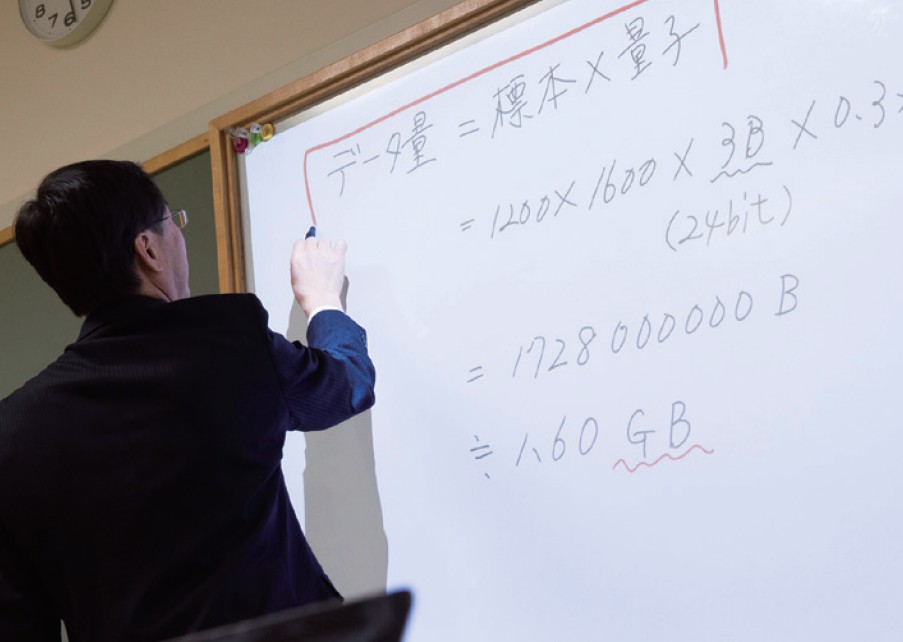 データ量 = 標本×量子
= 1200×1600×3B×0.3×
(24bit)
= 1728000000 B
≒ 1.60 GB
8 7 6 5